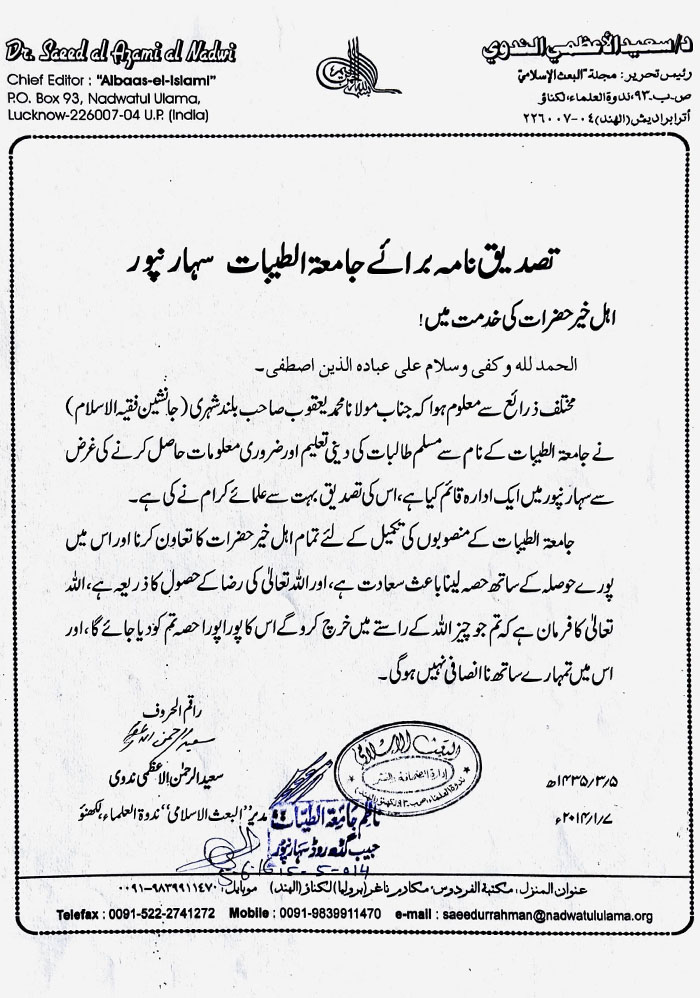 Dr. Saeed al Azami al Nadwi
Chief Editor : "Albaas-el-Islami"
P.O. Box 93, Nadwatul Ulama,
Lucknow-226007-04 U.P. (India)
د/سعيد الأعظمي الندوي
رئيس تحرير: مجلة "البعث الإسلامي"
ص.ب.۹۳، ندوة العلماء، لكناؤ
أترا براديش (الهند) ۰۴-۲۲۶۰۰۷
تصدیق نامہ برائے جامعۃ الطیبات سہارنپور
اہل خیر حضرات کی خدمت میں!
الحمد لله وكفى وسلام على عباده الذين اصطفى۔
مختلف ذرائع سے معلوم ہوا کہ جناب مولانا محمد یعقوب صاحب بلند شہری (جانشین فقیہ الاسلام)
نے جامعۃ الطیبات کے نام سے مسلم طالبات کی دینی تعلیم اور ضروری معلومات حاصل کرنے کی غرض
سے سہارنپور میں ایک ادارہ قائم کیا ہے، اس کی تصدیق بہت سے علمائے کرام نے کی ہے۔
جامعۃ الطیبات کے منصوبوں کی تکمیل کے لئے تمام اہل خیر حضرات کا تعاون کرنا اور اس میں
پورے حوصلہ کے ساتھ حصہ لینا باعث سعادت ہے، اور اللہ تعالیٰ کی رضا کے حصول کا ذریعہ ہے، اللہ
تعالیٰ کا فرمان ہے کہ تم جو چیز اللہ کے راستے میں خرچ کروگے اس کا پورا پورا حصہ تم کو دیا جائے گا، اور
اس میں تمہارے ساتھ نا انصافی نہیں ہوگی۔
راقم الحروف
سعید الرحمٰن الاعظمی ندوی
مدیر "البعث الاسلامی" ندوۃ العلماء، لکھنؤ
البعث الإسلامي
إدارة الصحافة والنشر
ندوة العلماء، ص.ب ۹۳ لكناؤ (الهند)
۱۴۳۵/۳/۵ھ
۲۰۱۴/۱/۷ء
ناظم جامعة الطیبات
حبیب گڈھ روڈ سہارنپور
15-5-014
عنوان المنزل: مكتبة الفردوس، مكارم نغر (برولیا) لكناؤ (الهند) موبایل: ۹۸۳۹۹۱۱۴۷۰-۰۰۹۱
Telefax : 0091-522-2741272 Mobile : 0091-9839911470 e-mail : saeedurrahman@nadwatululama.org